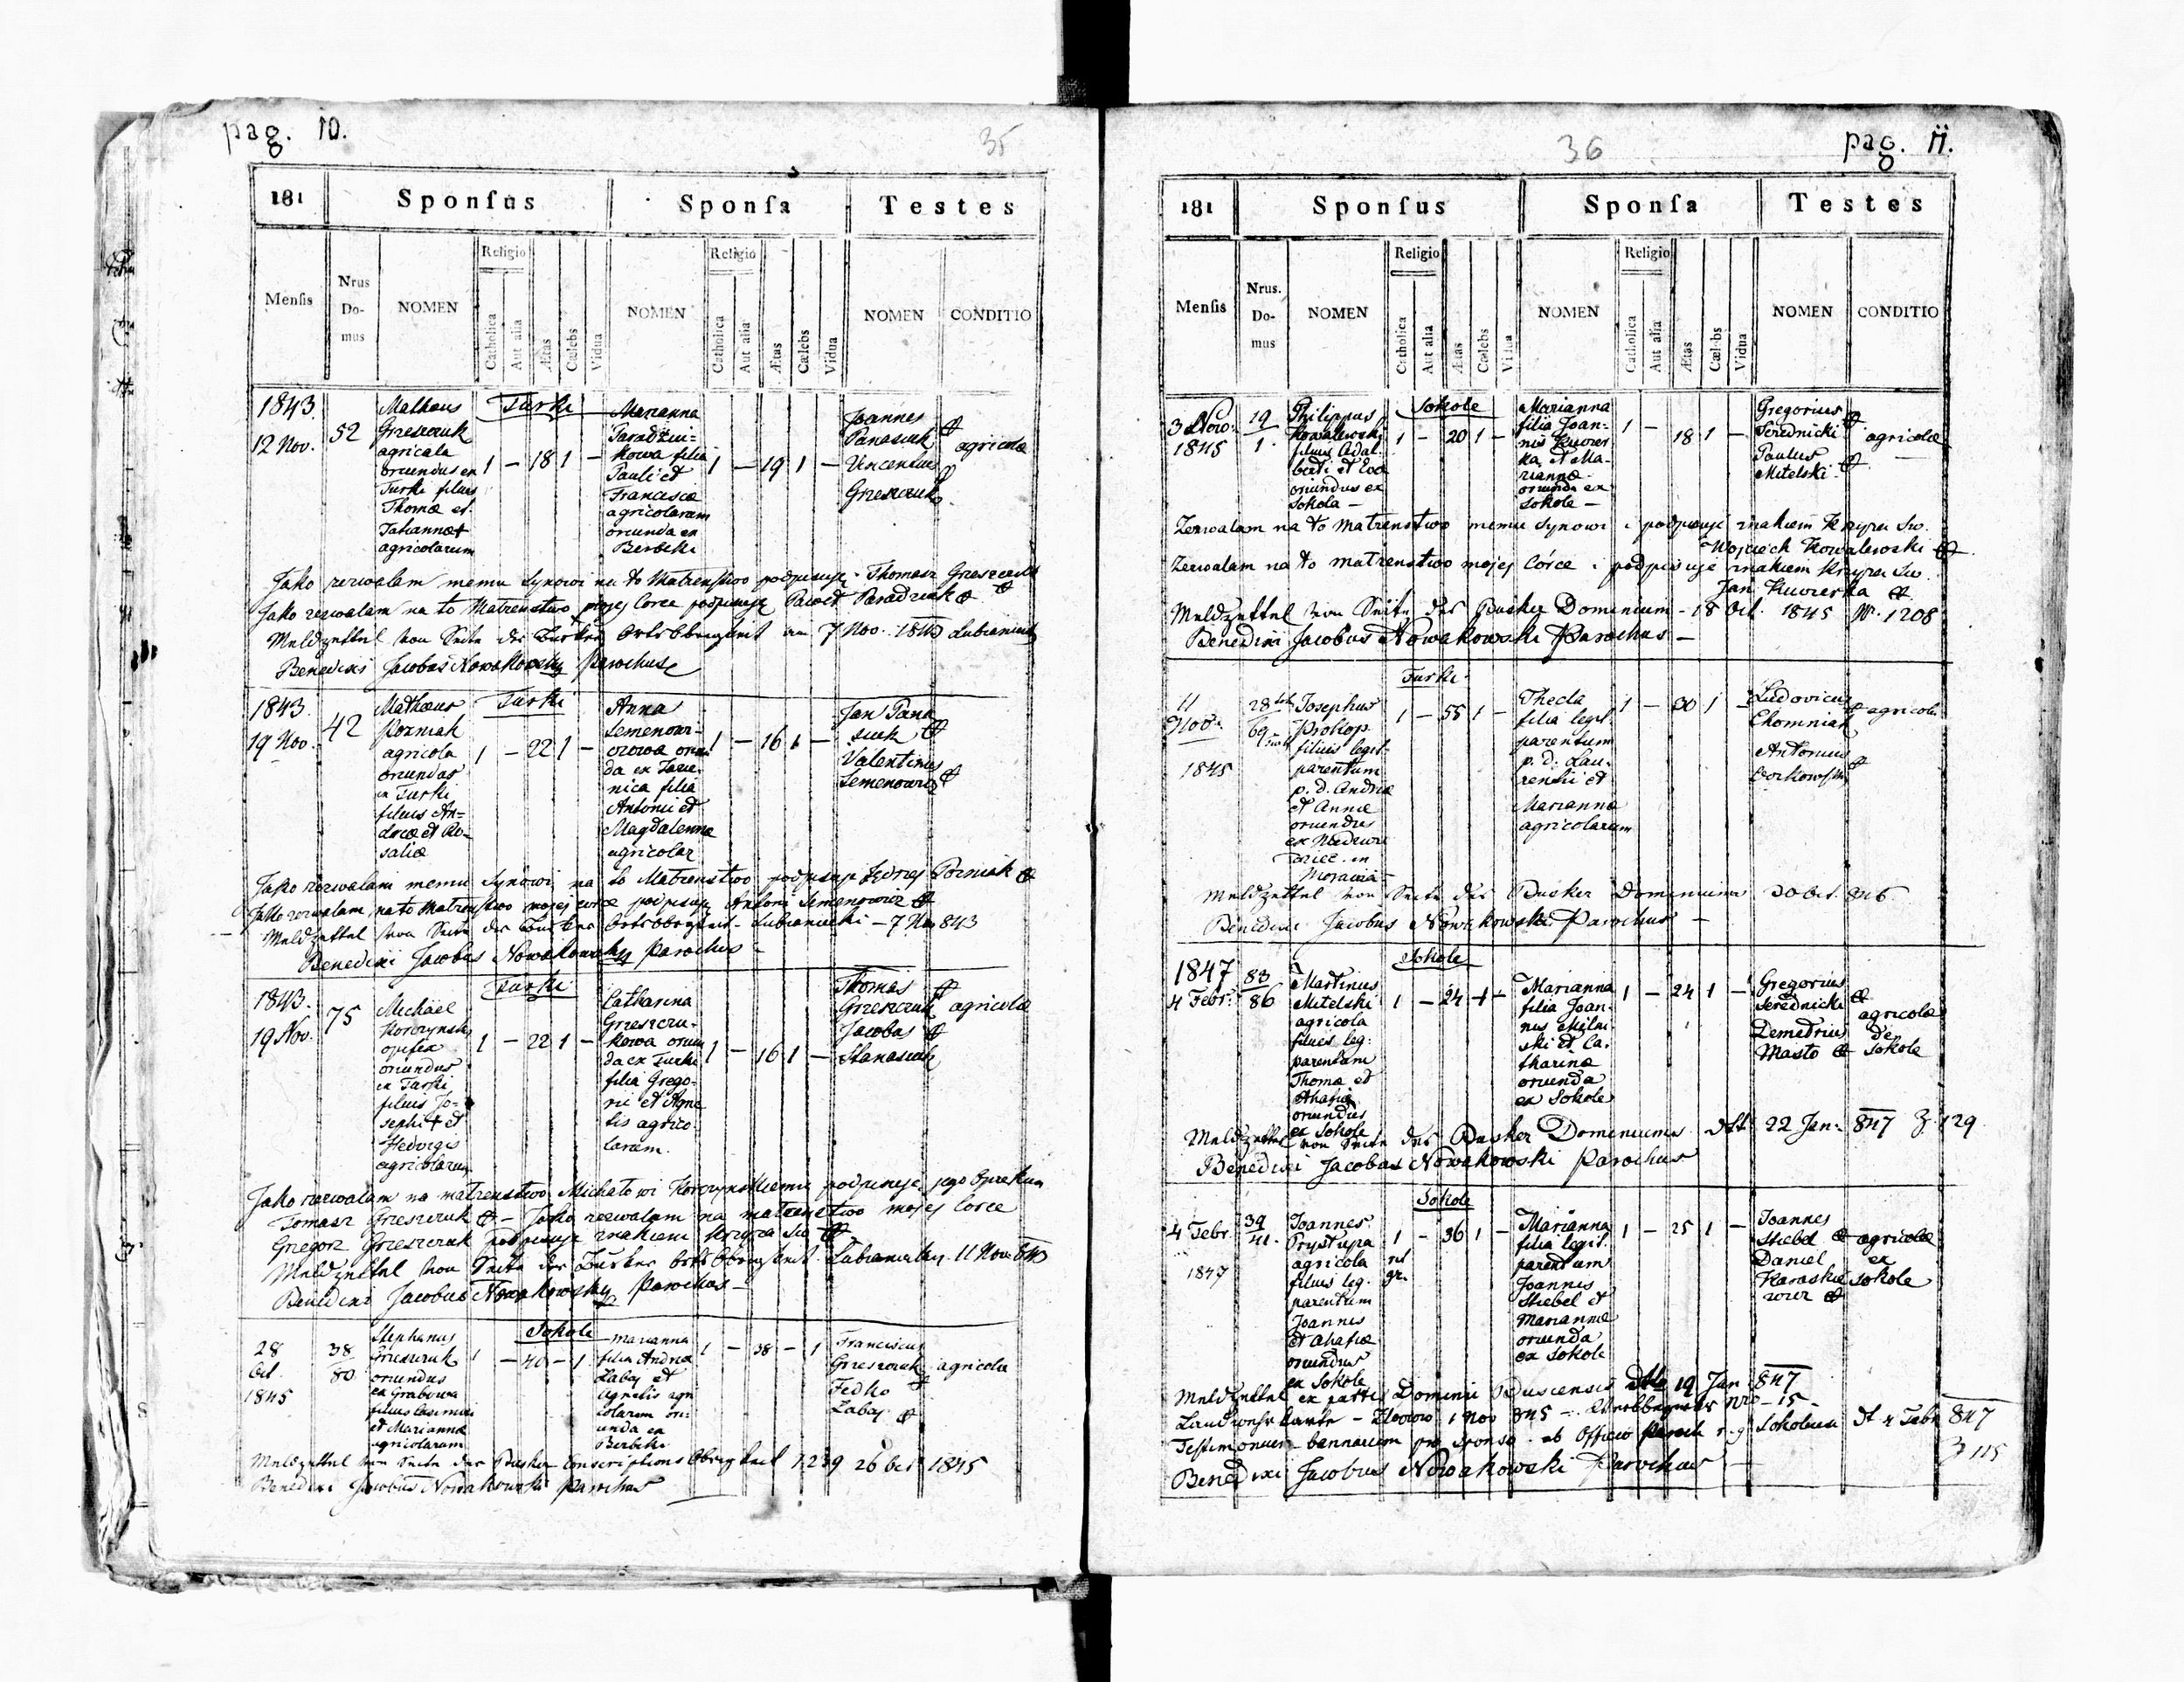 pag. 10.
35
181
Sponſus
Sponſa
Testes
Menſis
Nrus Do- mus
NOMEN
Religio
Catholica
Aut alia
Ætas
Cælebs
Vidua
NOMEN
Religio
Catholica
Aut alia
Ætas
Cælebs
Vidua
NOMEN
CONDITIO
Turki
1843.
12 Nov.
52
Matheus
Grzeszczuk
agricola
oriundus ex
Turki filius
Thomæ et
Tatiannæ +
agricolarum
1 — 18 1 —
Marianna
Paradziu=
kowa filia
Pauli et
Francisca
agricolarum
oriunda ex
Berbeki
1 — 19 1 —
Joannes
Panasiuk
Vincentius
Grzeszczuk
agricolæ
Jako zezwalam memu synowi na to Matrenstwo podpisuję Thomasz Grzeszczuk
Jako zezwalam na to Matrenstwo mojej Corce podpisuję Paweł Paradziuk
Meldzettel von Seite der Turker Ortsobrigkeit am 7 Nov. 1843 Lubieniecki
Benedixi Jacobus Nowakowsky Parochus
Turki
1843.
19 Nov.
42
Matheus
Pozniak
agricola
oriundus
ex Turki
filius An=
dreæ et Ro=
saliæ
1 — 22 1 —
Anna
Semenowi=
czowa oriun
da ex
nica filia
Antonii et
Magdalenna
agricolar
1 — 16 1 —
Jan Pana
siuk
Valentinus
Semenowicz
Jako zezwalam memu Synowi na to Matrenstwo podpisuję Jędrzej Pozniak
Jako zezwalam na to Matrenstwo mojej corce podpisuję Antoni Semenowicz
Meldzettel von Seite der Turker Ortsobrigkeit - Lubieniecki — 7 Nov 843
Benedixi Jacobus Nowakowsky Parochus
Turki
1843.
19 Nov.
75
Michael
Korczynski
opifex
oriundus
ex Turki
filius Jo=
sephi + et
Hedvigis
agricolarum
1 — 22 1 —
Catharina
Grzeszczu=
kowa oriun
da ex Turki
filia Grego=
rii et Agne
tis agrico
larum.
1 — 16 1 —
Thomas
Grzeszczuk
Jacobus
Stanasiuk
agricolæ
Jako zezwalam na matrenstwo Michałowi Korczynskiemu podpisuję jego Opiekun
Tomasz Grzeszczuk — Jako zezwalam na matrenstwo mojej Corce
Gregorz Grzeszczuk podpisuję znakiem krzyża Sw
Meldzettel von Seite der Turker Ortsobrigkeit. Lubieniecky. 11 Nov 843
Benedixi Jacobus Nowakowsky Parochus —
Sokole
28
Oct.
1845
38
80
Stephanus
Grzeszczuk
oriundus
ex Grabowa
filius Casimiri
et Mariannæ
agricolarum
1 — 40 — 1
Marianna
filia Andreæ
Zabaj et
Agnetis agri
colarum ori=
unda ex
Berbeki
1 — 38 — 1
Franciscus
Grzeszczuk
Fedko
Zabaj
agricolæ
Meldzettel von Seite der Busker Conscriptions Obrigkeit 1239 26 Oct 1845
Benedixi Jacobus Nowakowski Parochus
36
pag. 11.
181
Sponſus
Sponſa
Testes
Menſis
Nrus. Do- mus
NOMEN
Religio
Catholica
Aut alia
Ætas
Cælebs
Vidua
NOMEN
Religio
Catholica
Aut alia
Ætas
Cælebs
Vidua
NOMEN
CONDITIO
Sokole
3 Nov.
1845
19
1.
Philippus
Kowalewski
filius Adal=
berti et Evæ
oriundus ex
Sokola —
1 — 20 1 —
Marianna
filia Joan=
nis Kuczer
ka et Ma=
riannæ
oriunda ex
Sokole —
1 — 18 1 —
Gregorius
Serednicki
Paulus
Mitelski
agricolæ
Zezwalam na to Matrenstwo memu synowi i podpisuję znakiem Krzyza Sw.
Wojciech Kowalewski
Zezwalam na to matrenstwo mojej Córce i podpisuję znakiem Krzyza Sw.
Jan Kuczerka
Meldzettel von Seite des Busker Dominium — 18 Oct. 1845 Nr. 1208
Benedixi Jacobus Nowakowski Parochus —
Turki
11
Nov.
1845
28
69
Josephus
Prokop
filius legit=
parentum
p. d. Andreæ
et Annæ
oriundus
ex
in
Moravia
1 — 55 1 —
Thecla
filia legit.
parentum
p. d. Lau=
rentii et
Marianna
agricolarum
1 — 30 1 —
Ludovicus
Chomniak
Antonius
agricolæ
Meldzettel von Seite des Busker Dominiums 30 Oct. 846
Benedixi Jacobus Nowakowski Parochus —
Sokole
1847
4 Febr.
83
86
Martinus
Mitelski
agricola
filius leg:
parentum
Thomæ et
Ahafiæ
oriundus
ex Sokole
1 — 24 1 —
Marianna
filia Joan=
nis Milni=
ski et Ca=
tharinæ
oriunda
ex Sokole
1 — 24 1 —
Gregorius
Serednicki
Demetrius
Masto
agricolæ
de
Sokole
Meldzettel von Seite des Busker Dominiums dtt 22 Jan. 847 Z. 129
Benedixi Jacobus Nowakowski Parochus
Sokole
4 Febr.
1847
39
41.
Joannes
Prystupa
agricola
filius leg.
parentum
Joannis
et Ahafiæ
oriundus
ex Sokole
1 — 36 1 —
rit
gr.
Marianna
filia legit.
parentum
Joannis
Stiebel et
Mariannæ
oriunda
ex Sokole
1 — 25 1 —
Joannes
Stiebel
Daniel
Karaskie
wicz
agricolæ
ex
Sokole
Meldzettel ex parte Dominii Buscensis dtto 19 Jan 847
Landwehrkarte — Zloczow 1 Nov 845 — Nro — 15 —
Testimonium bannorum pro sponso ab Officio Paroch r. g. Sokolensi dt 4 Febr 847
Z 115
Benedixi Jacobus Nowakowski Parochus —